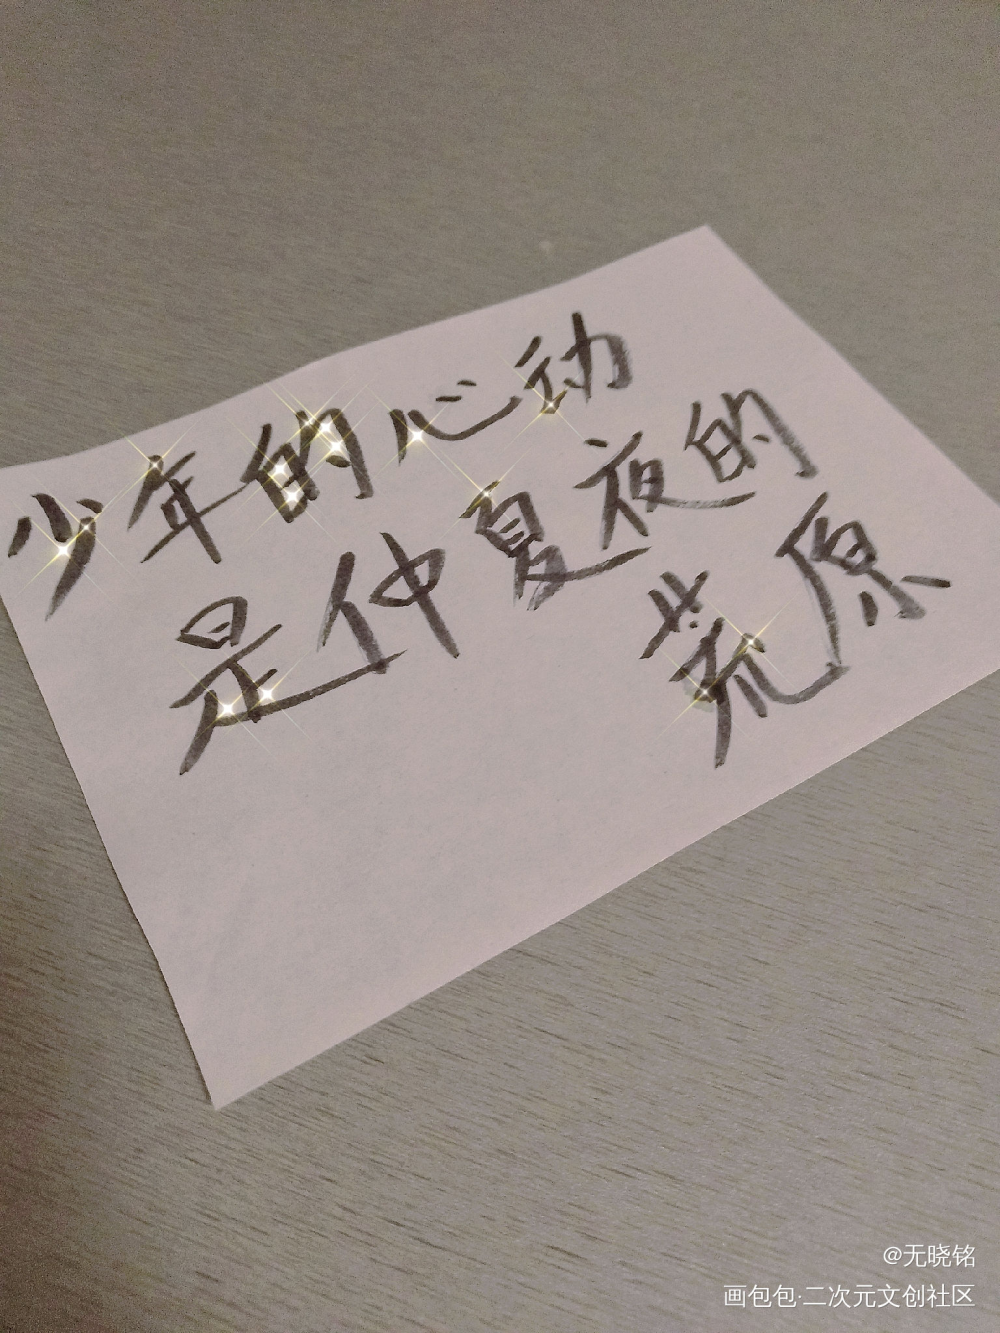 少年的心动
是仲夏夜的
荒原
@无晓铭
画包包·二次元文创社区